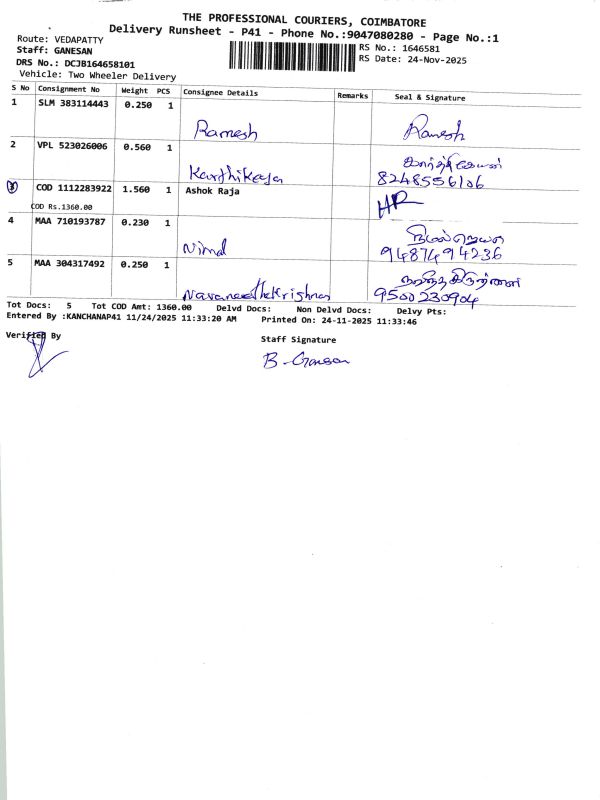 THE PROFESSIONAL COURIERS, COIMBATORE
Delivery Runsheet - P41 - Phone No.:9047080280 - Page No.:1
Route: VEDAPATTY
RS No.: 1646581
Staff: GANESAN
RS Date: 24-Nov-2025
DRS No.: DCJB164658101
Vehicle: Two Wheeler Delivery
S No Consignment No Weight PCS Consignee Details Remarks Seal & Signature
1 SLM 383114443 0.250 1
Ramesh Ramesh
2 VPL 523026006 0.560 1
கார்த்திகேயன்
Karthikeya 8248556106
COD 1112283922 1.560 1 Ashok Raja
COD Rs.1360.00
4 MAA 710193787 0.230 1
Nimal 9487494236
5 MAA 304317492 0.250 1
Navaneethakrishnan 9500230904
Tot Docs: 5 Tot COD Amt: 1360.00 Delvd Docs: Non Delvd Docs: Delvy Pts:
Entered By :KANCHANAP41 11/24/2025 11:33:20 AM Printed On: 24-11-2025 11:33:46
Verified By Staff Signature